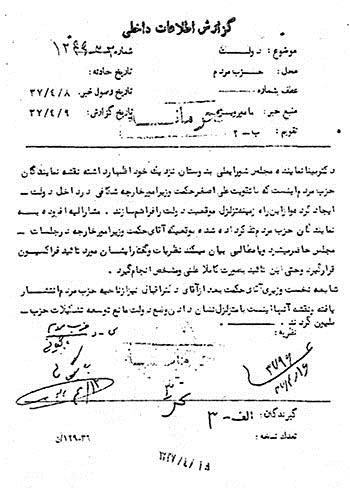 گزارش اطلاعات داخلی
موضوع : دولت
شماره
محل : حزب مردم
تاریخ حادثه :
عطف بشماره
تاریخ وصول خبر: ۳۷/۴/۸
منبع خبر :
تاریخ گزارش: ۳۷/۴/۹
تقویم : ب-۲
دکتر بینا نماینده مجلس شورایملی بدوستان نزدیک خود اظهار داشته نقشه نمایندگان
حزب مردم اینست که با تقویت علی اصغر حکمت وزیر امور خارجه شکافی در داخل دولت
ایجاد کرده و از این راه زمینه تزلزل موقعیت دولت را فراهم سازند . مشارالیه افزوده به
نمایندگان حزب مردم تذکر داده شده موقعیکه آقای حکمت وزیر امور خارجه در جلسات
مجلس حاضر میشود و مطالبی بیان میکند نظریات و گفتارایشان مورد تائید فراکسیون
قرار گیرد و حتی این تائید بصورت کاملا علنی و مشخص انجام گیرد .
شایعه نخست وزیری آقای حکمت بعد از آقای دکتر اقبال نیز از ناحیه حزب مردم انتشار
یافته و نقشه آنها اینست با متزلزل نشان دادن وضع دولت مانع توسعه تشکیلات حزب
ملیون گردند .
نظریه :
حزب مردم
گیرندگان : الف-۳
تعداد نسخه :
۱۲۹-۳۶/ن